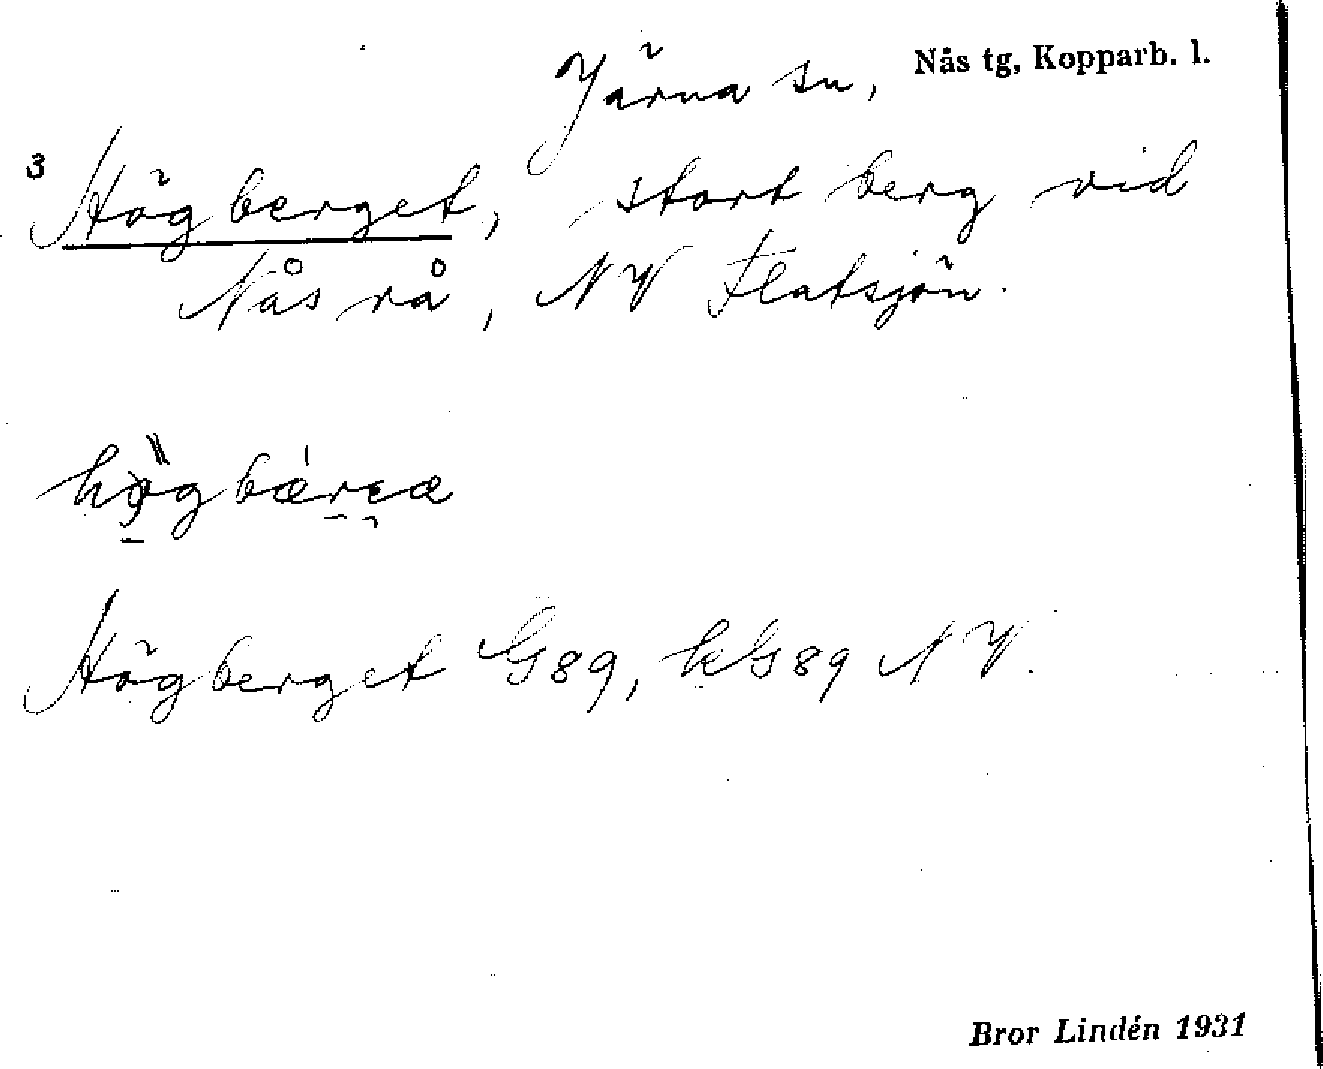 Järna sn, Nås tg, Kopparb. l.
3 Högberget, stort berg vid
Nås rå, NV Flatsjön.
Högberget G89, kG89 NV.
Bror Lindén 1931